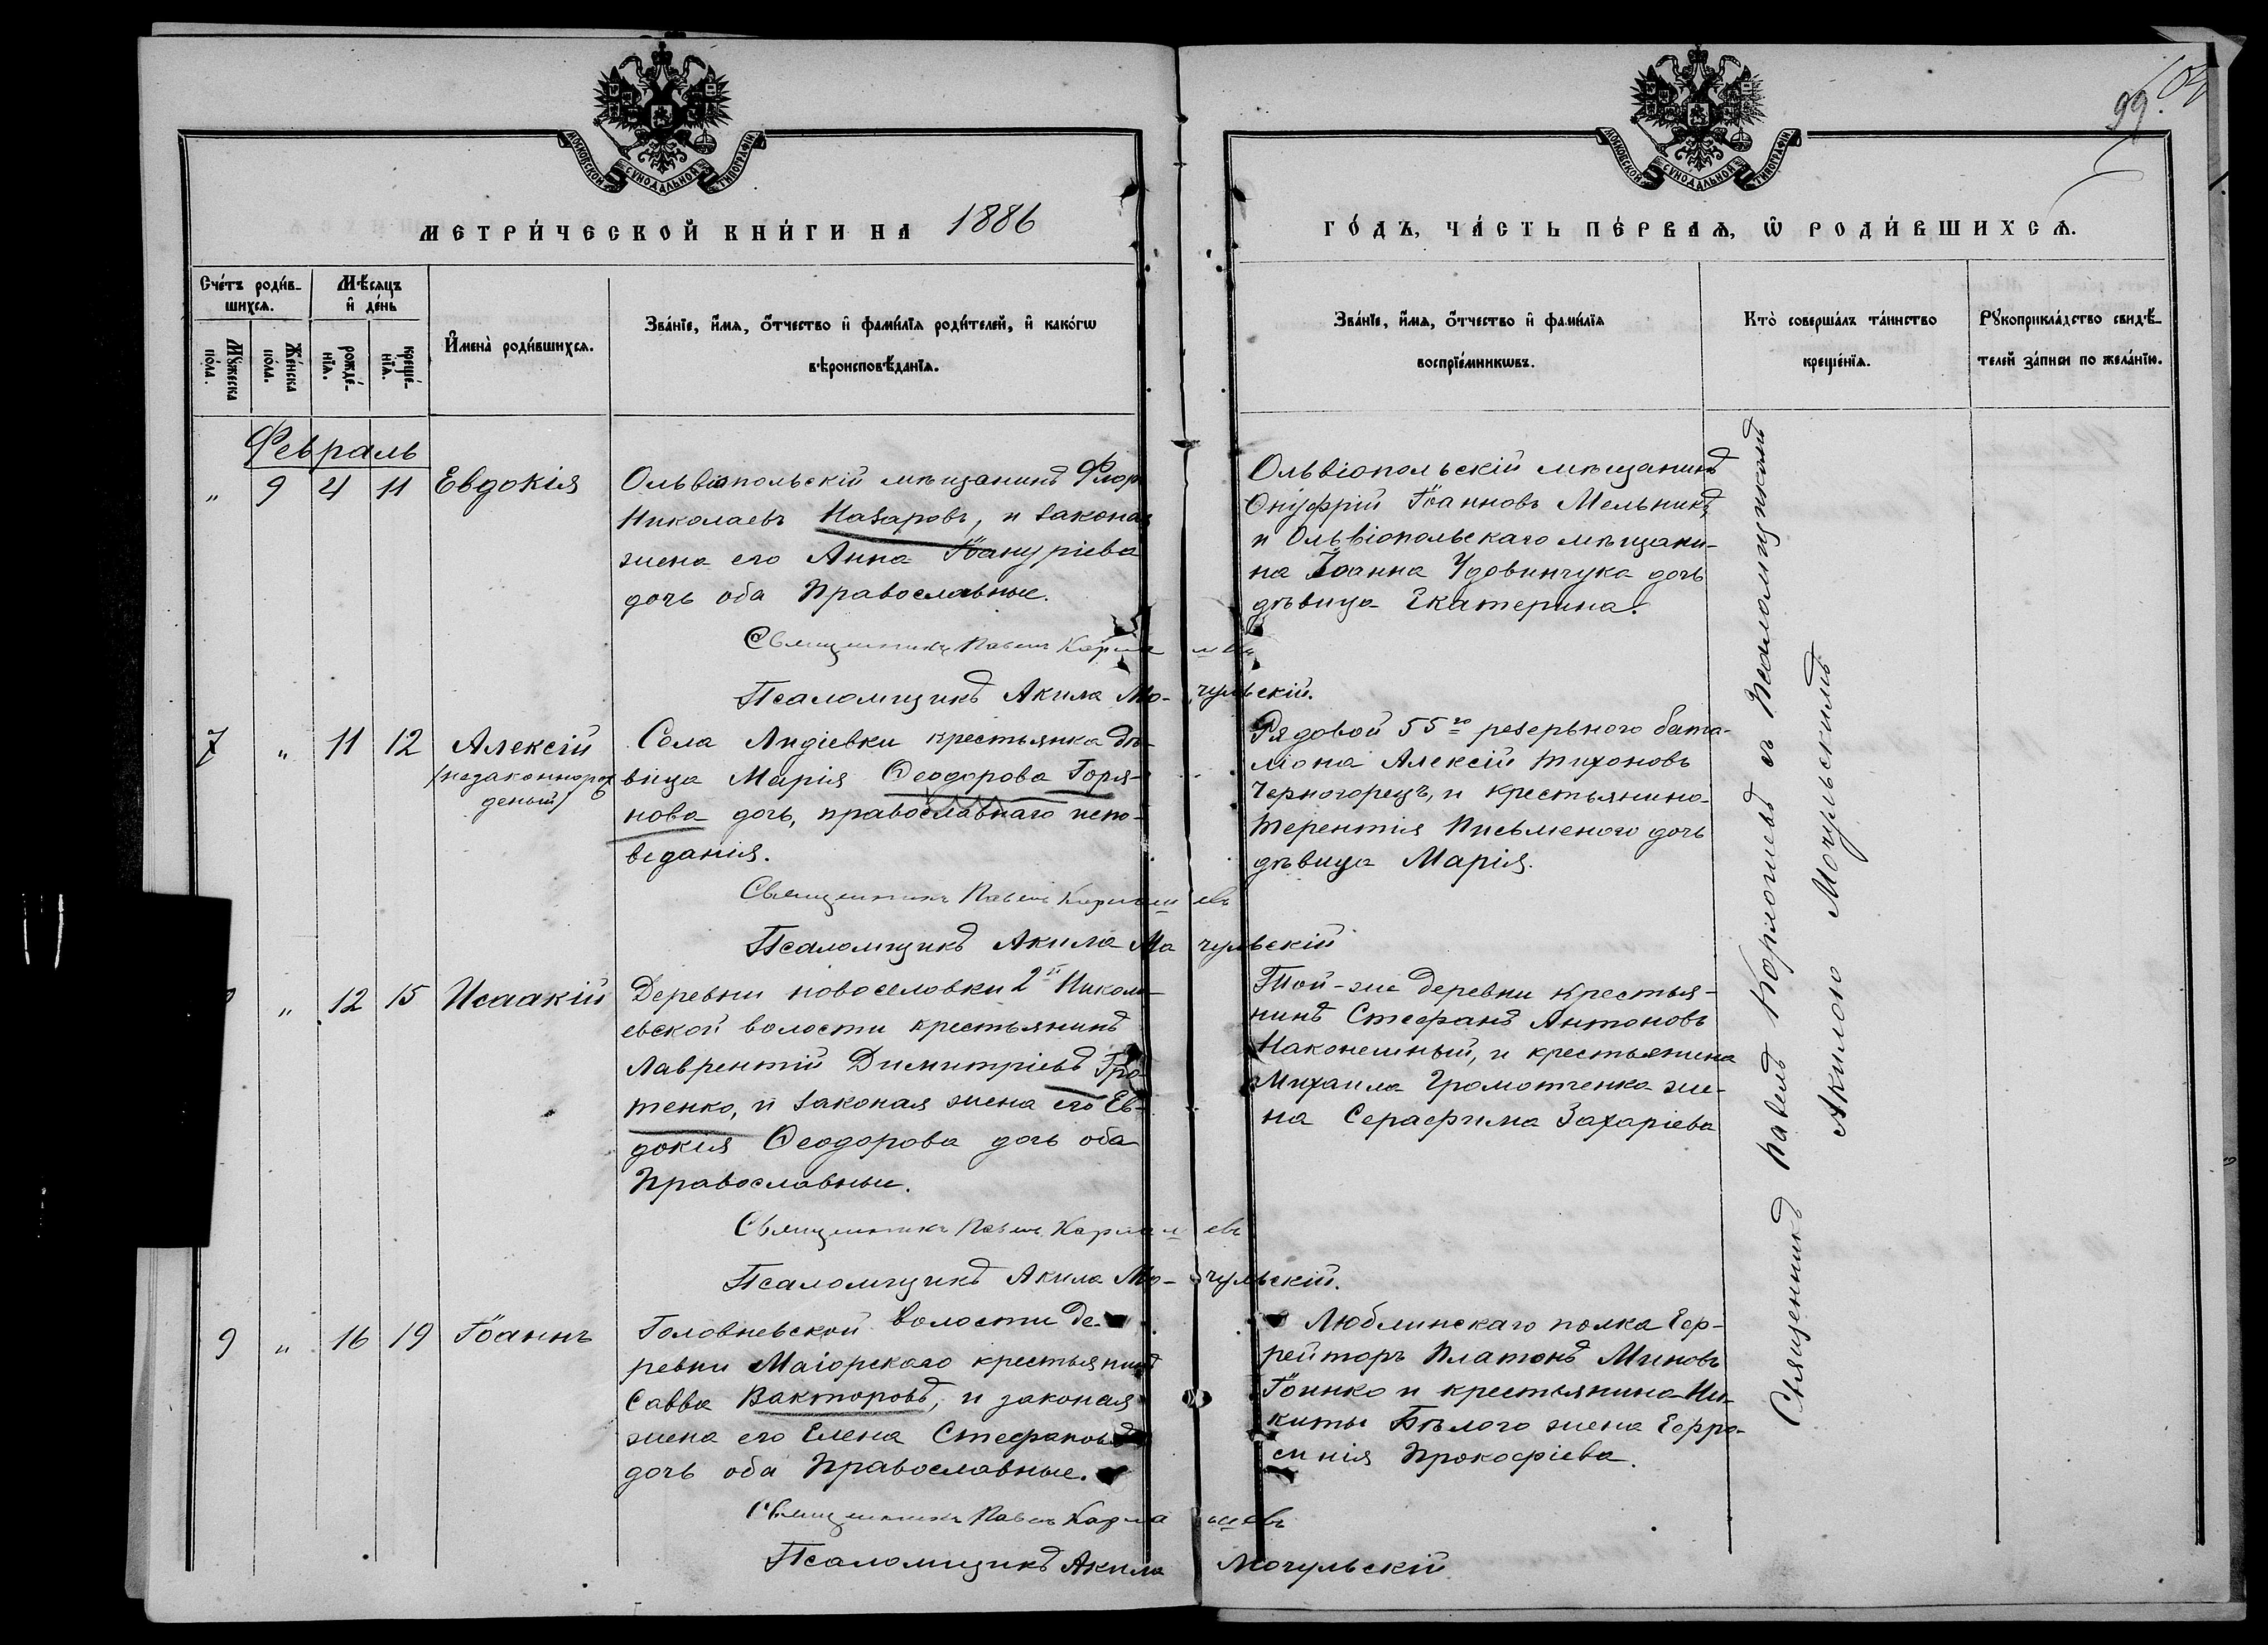 99.
МОСКОВСКОЙ СУНОДАЛЬНОЙ ТИПОГРАФІИ
МОСКОВСКОЙ СУНОДАЛЬНОЙ ТИПОГРАФІИ
МЕТРИ́ЧЕСКОЙ КНИ́ГИ НА 1886
ГО́ДЪ, ЧА́СТЬ ПЕ́РВАѦ, Ѡ҆ РОДИ́ВШИХСѦ.
Сче́тъ роди́в-
шихсѧ.
Мѣ́сѧцъ
и҆ де́нь
Мꙋ́жеска
по́ла.
Же́нска
по́ла.
рожде́-
нїѧ.
креще́-
нїѧ.
И҆мена̀ роди́вшихсѧ.
Зва́нїе, и҆́мѧ, ѻ҆́тчество и҆ фами́лїѧ роди́телей, и҆ како́гѡ
вѣроисповѣ́данїѧ.
Зва́нїе, и҆́мѧ, ѻ҆́тчество и҆ фами́лїѧ
воспрїе́мникѡвъ.
Кто̀ соверша́лъ та́инство
креще́нїѧ.
Рꙋкоприкла́дство свидѣ́-
телей за́писи по жела́нїю.
Февраль
" 9 4 11 Евдокія
Ольвіопольскій мѣщанинъ Флор
Николаевъ Назаровъ, и законая
жена его Анна Іоануріева
дочь оба Православные.
Священникъ Павелъ
Псаломщикъ Акила Мо-чульскій.
Ольвіопольскій мѣщанинъ
Онуфрій Іоанновъ Мельникъ,
и Ольвіопольскаго мѣщани-
на Іоанна Удовинчука дочь
дѣвица Екатерина.
7 " 11 12 Алексій
/незаконнорож
деный/
Села Лидіевки крестьянка дѣ-
вица Марія Ѳеодорова Горя-
нова дочь, православнаго испо-
веданія.
Священникъ Павелъ
Псаломщикъ Акила Мочульскій
Рядовой 55го резервного бата-
ліона Алексій Тихоновъ
Черногорецъ, и крестьянина
Терентія Письменого дочь
дѣвица Марія.
" 12 15 Исаакій
Деревни новоселовки 2й Никола-
евской волости крестьянинъ
Лаврентій Димитріевъ Гро
тенко, и законая жена его Ев-
докія Ѳеодорова дочь оба
Православные.
Священникъ Павелъ
Псаломщикъ Акила Мо-чульскій.
Той-же деревни крестья-
нинъ Стефанъ Антоновъ
Наконешный, и крестьянина
Михаила Громотченка же-
на Серафима Захаріева
9 " 16 19 Іоаннъ
Головневской волости де-
ревни Маіорского крестьянинъ
Савва Вакторовъ, и законая
жена его Елена Стефанова
дочь оба Православные.
Священникъ Павелъ
Псаломщикъ Акила Мочульскій
Люблинскаго полка Еф-
рейторъ Платонъ Миновъ
Іоинко и крестьянина Ни-
киты Бѣлого жена Ефро-
синія Прокофіева.
Священникъ Павелъ Кормошевъ съ Псаломщикомъ
Акилою Мочульскимъ